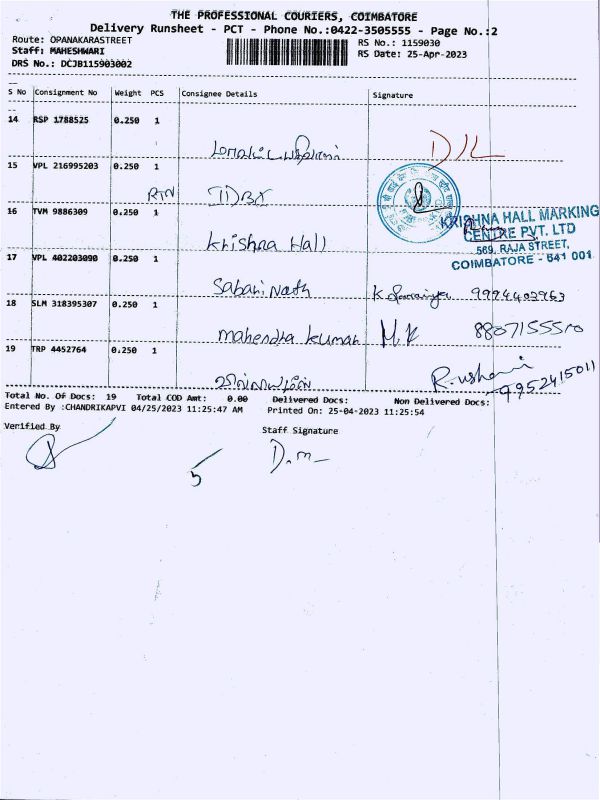 THE PROFESSIONAL COURIERS, COIMBATORE
Delivery Runsheet - PCT - Phone No.:0422-3505555 - Page No.:2
Route: OPANAKARASTREET
RS No.: 1159030
Staff: MAHESHWARI
RS Date: 25-Apr-2023
DRS No.: DCJB115903002
S No Consignment No Weight PCS Consignee Details Signature
14 RSP 1788525 0.250 1
D/L
15 VPL 216995203 0.250 1
RTN IDBI
16 TVM 9886309 0.250 1
Krishna Hall
KRISHNA HALL MARKING
CENTRE PVT. LTD
569, RAJA STREET,
COIMBATORE - 641 001
17 VPL 402203090 0.250 1
Sabari Nath K 9994403963
18 SLM 318395307 0.250 1
mahendra kumar M.K
19 TRP 4452764 0.250 1
9952415011
Total No. Of Docs: 19 Total COD Amt: 0.00 Delivered Docs: Non Delivered Docs:
Entered By :CHANDRIKAPVI 04/25/2023 11:25:47 AM Printed On: 25-04-2023 11:25:54
Verified By Staff Signature
5 D.m